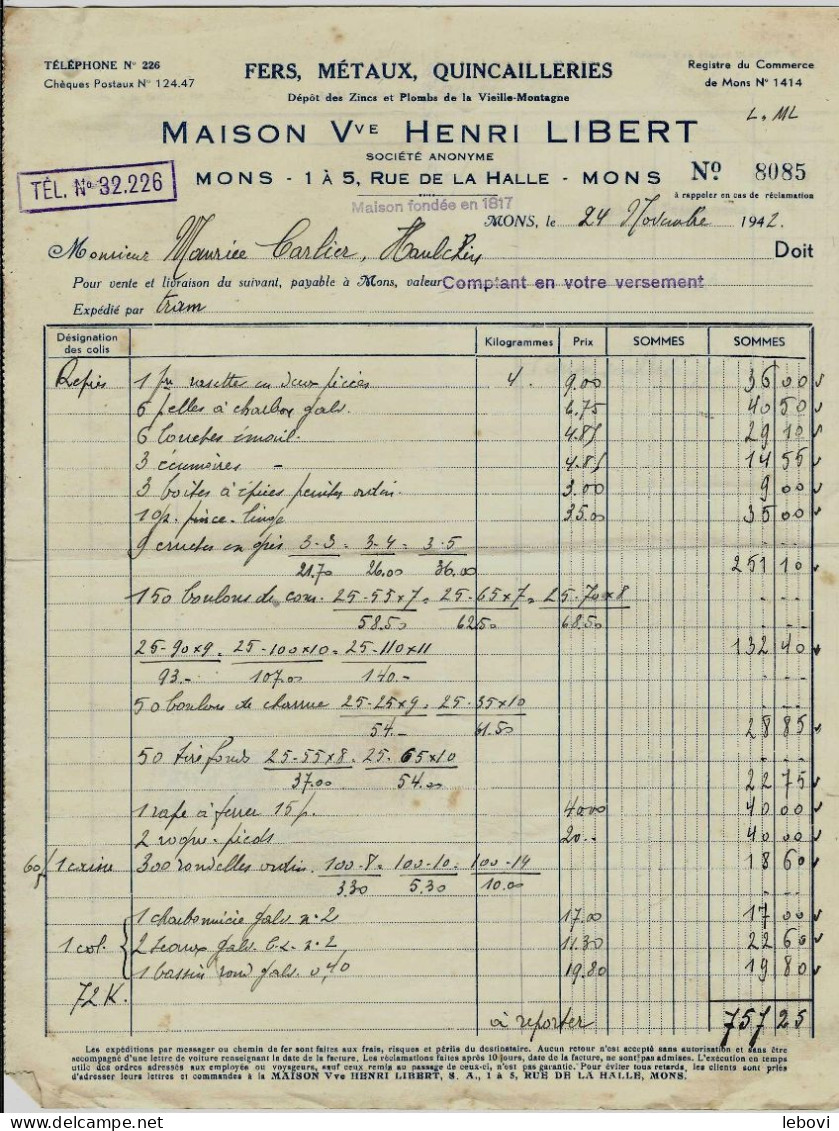 TÉLÉPHONE N° 226
Chèques Postaux N° 124.47
FERS, MÉTAUX, QUINCAILLERIES
Dépôt des Zincs et Plombs de la Vieille-Montagne
Registre du Commerce
de Mons N° 1414
L. ML
MAISON Vve HENRI LIBERT
SOCIÉTÉ ANONYME
TÉL. No 32.226
MONS - 1 À 5, RUE DE LA HALLE - MONS
No 8085
à rappeler en cas de réclamation
Maison fondée en 1817
MONS, le 24 Novembre 1942.
Monsieur Maurice Carlier, Haulchin Doit
Pour vente et livraison du suivant, payable à Mons, valeur Comptant en votre versement
Expédié par tram
Désignation des colis Kilogrammes Prix SOMMES SOMMES
Repris 1 en deux pièces 4. 9.00 36 00
6 pelles à charbon galv. 6.75 40 50
6 louches émail. 4.85 29 10
3 écumoires - 4.85 14 55
3 boites à épices peintes ordin. 3.00 9 00
10 p. pince-linge 35.00 35 00
9 cruches en grès 3-3 = 3-4 = 3-5
21.70 26.00 36.00 251 10
150 boulons de com. 25-55x7 = 25-65x7 = 25-70x8
58.50 62.50 68.50
25-90x9 = 25-100x10 = 25-110x11 132 40
93.- 107.00 140.-
50 boulons de charrue 25-25x9 = 25-35x10
54.- 61.50 28 85
50 tirefonds 25-55x8 = 25-65x10
37.00 54.00 22 75
1 rape à ferrer 15 p. 40.00 40 00
2 rogne-pieds 20.- 40 00
60 1 caisse 300 rondelles ordin. 100-8 = 100-10 = 100-14 18 60
3.30 5.30 10.00
1 charbonnière galv. n° 2 17.00 17 00
1 col. 2 seaux galv. n° 2 11.30 22 60
1 bassin rond galv. 0,40 19.80 19 80
72 K.
à reporter 757 25
Les expéditions par messager ou chemin de fer sont faites aux frais, risques et périls du destinataire. Aucun retour n'est accepté sans autorisation et sans être
accompagné d'une lettre de voiture renseignant la date de la facture. Les réclamations faites après 10 jours, date de la facture, ne sont pas admises. L'exécution en temps
utile des ordres adressés aux employés ou voyageurs, sauf ceux remis au passage de ceux-ci, n'est pas garantie. Pour éviter tous retards, les clients sont priés
d'adresser leurs lettres et commandes à la MAISON Vve HENRI LIBERT, S. A., 1 à 5, RUE DE LA HALLE, MONS.
lebovi